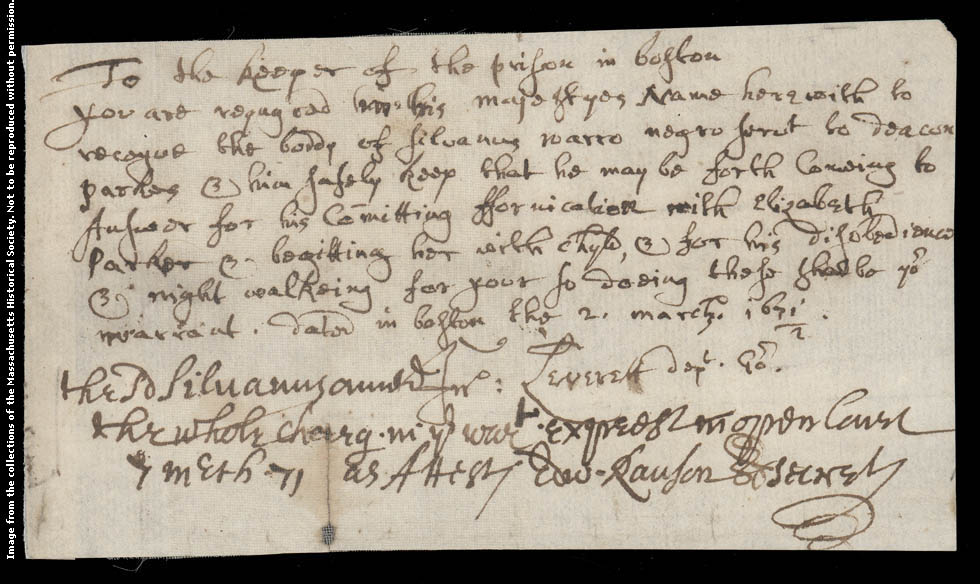 Image from the collections of the Massachusetts Historical Society. Not to be reproduced without permission.
To the keeper of the prison in boston
yow are requyred in his majestyes Name herewith to
receyve the boddy of Silvanus warro negro servt to deacon
Parkes & him safely keep that he may be forth Comeing to
Answer for his Comitting ffornication with Elizabeth
Parker & begitting her with Chyld, & for his disobedience
& night walkeing for your so doeing these shall be yor
warrant. dated in boston the 2. march. 1671/2.
Jno: Leverett dept. Go.
the sd Silvanus ownd
the whole charg. in ye wart. exprest in open Court
7 meth 71 as Attests Edw. Rawson Secrety